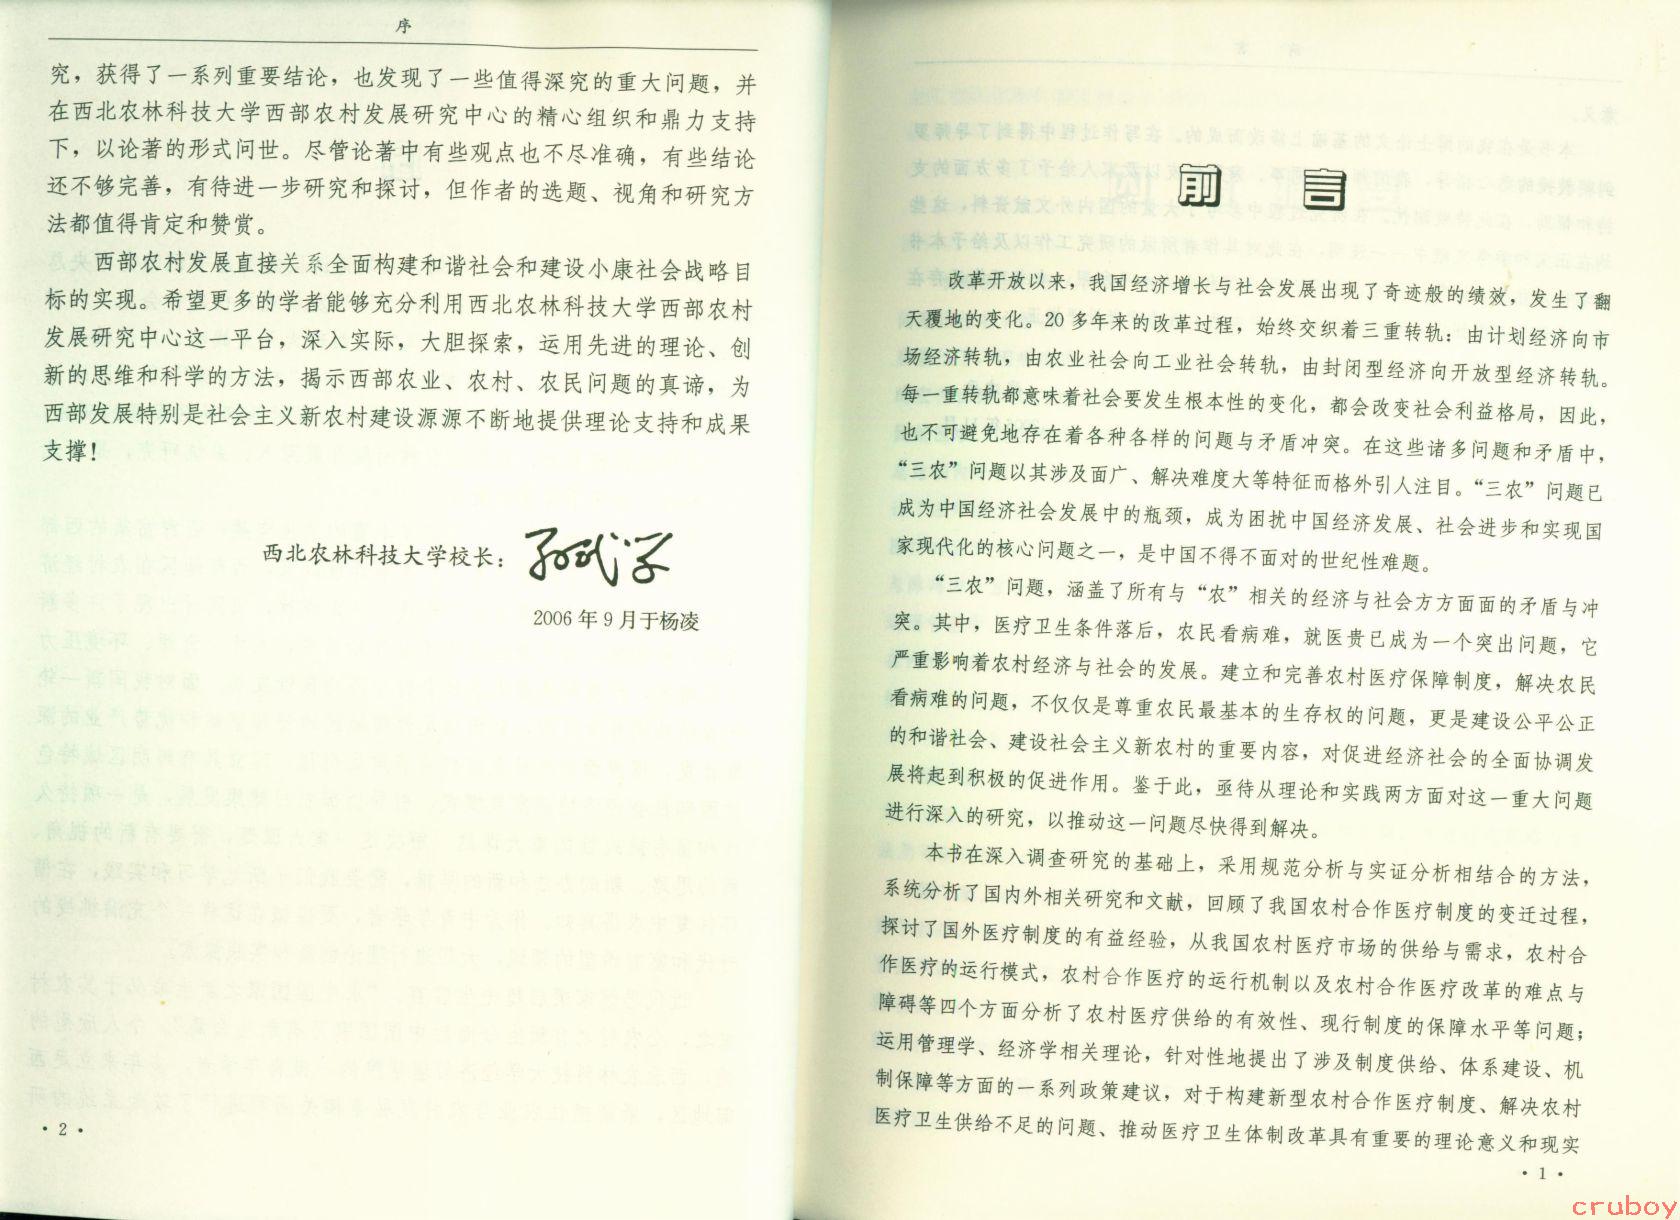 序
究，获得了一系列重要结论，也发现了一些值得深究的重大问题，并
在西北农林科技大学西部农村发展研究中心的精心组织和鼎力支持
下，以论著的形式问世。尽管论著中有些观点也不尽准确，有些结论
还不够完善，有待进一步研究和探讨，但作者的选题、视角和研究方
法都值得肯定和赞赏。
西部农村发展直接关系全面构建和谐社会和建设小康社会战略目
标的实现。希望更多的学者能够充分利用西北农林科技大学西部农村
发展研究中心这一平台，深入实际，大胆探索，运用先进的理论、创
新的思维和科学的方法，揭示西部农业、农村、农民问题的真谛，为
西部发展特别是社会主义新农村建设源源不断地提供理论支持和成果
支撑！
西北农林科技大学校长：孙武学
2006年9月于杨凌
·2·
前言
改革开放以来，我国经济增长与社会发展出现了奇迹般的绩效，发生了翻
天覆地的变化。20多年来的改革过程，始终交织着三重转轨：由计划经济向市
场经济转轨，由农业社会向工业社会转轨，由封闭型经济向开放型经济转轨。
每一重转轨都意味着社会要发生根本性的变化，都会改变社会利益格局，因此，
也不可避免地存在着各种各样的问题与矛盾冲突。在这些诸多问题和矛盾中，
“三农”问题以其涉及面广、解决难度大等特征而格外引人注目。“三农”问题已
成为中国经济社会发展中的瓶颈，成为困扰中国经济发展、社会进步和实现国
家现代化的核心问题之一，是中国不得不面对的世纪性难题。
“三农”问题，涵盖了所有与“农”相关的经济与社会方方面面的矛盾与冲
突。其中，医疗卫生条件落后，农民看病难，就医贵已成为一个突出问题，它
严重影响着农村经济与社会的发展。建立和完善农村医疗保障制度，解决农民
看病难的问题，不仅仅是尊重农民最基本的生存权的问题，更是建设公平公正
的和谐社会、建设社会主义新农村的重要内容，对促进经济社会的全面协调发
展将起到积极的促进作用。鉴于此，亟待从理论和实践两方面对这一重大问题
进行深入的研究，以推动这一问题尽快得到解决。
本书在深入调查研究的基础上，采用规范分析与实证分析相结合的方法，
系统分析了国内外相关研究和文献，回顾了我国农村合作医疗制度的变迁过程，
探讨了国外医疗制度的有益经验，从我国农村医疗市场的供给与需求，农村合
作医疗的运行模式，农村合作医疗的运行机制以及农村合作医疗改革的难点与
障碍等四个方面分析了农村医疗供给的有效性、现行制度的保障水平等问题；
运用管理学、经济学相关理论，针对性地提出了涉及制度供给、体系建设、机
制保障等方面的一系列政策建议，对于构建新型农村合作医疗制度、解决农村
医疗卫生供给不足的问题、推动医疗卫生体制改革具有重要的理论意义和现实
·1·
cruboy